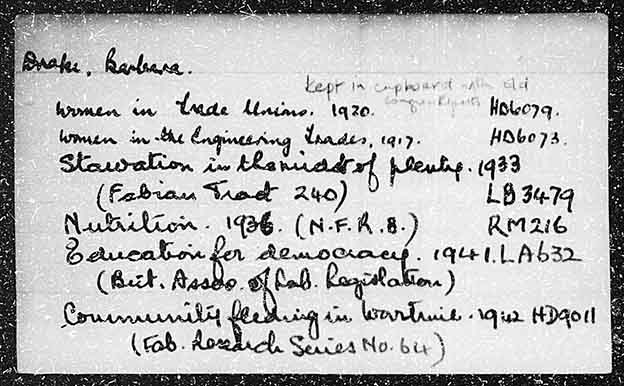 Drake, Barbara.
kept in cupboard with old
Congress Reports
Women in Trade Unions. 1920. HD6079.
Women in the Engineering Trades, 1917. HD6073.
Starvation in the midst of plenty. 1933
(Fabian Tract 240) LB3479
Nutrition. 1936. (N.F.R.8.) RM216
Education for democracy. 1941. LA632
(Brit. Assoc. of Lab. Legislation)
Community feeding in Wartime. 1942 HD9011
(Fab. Research Series No. 64)